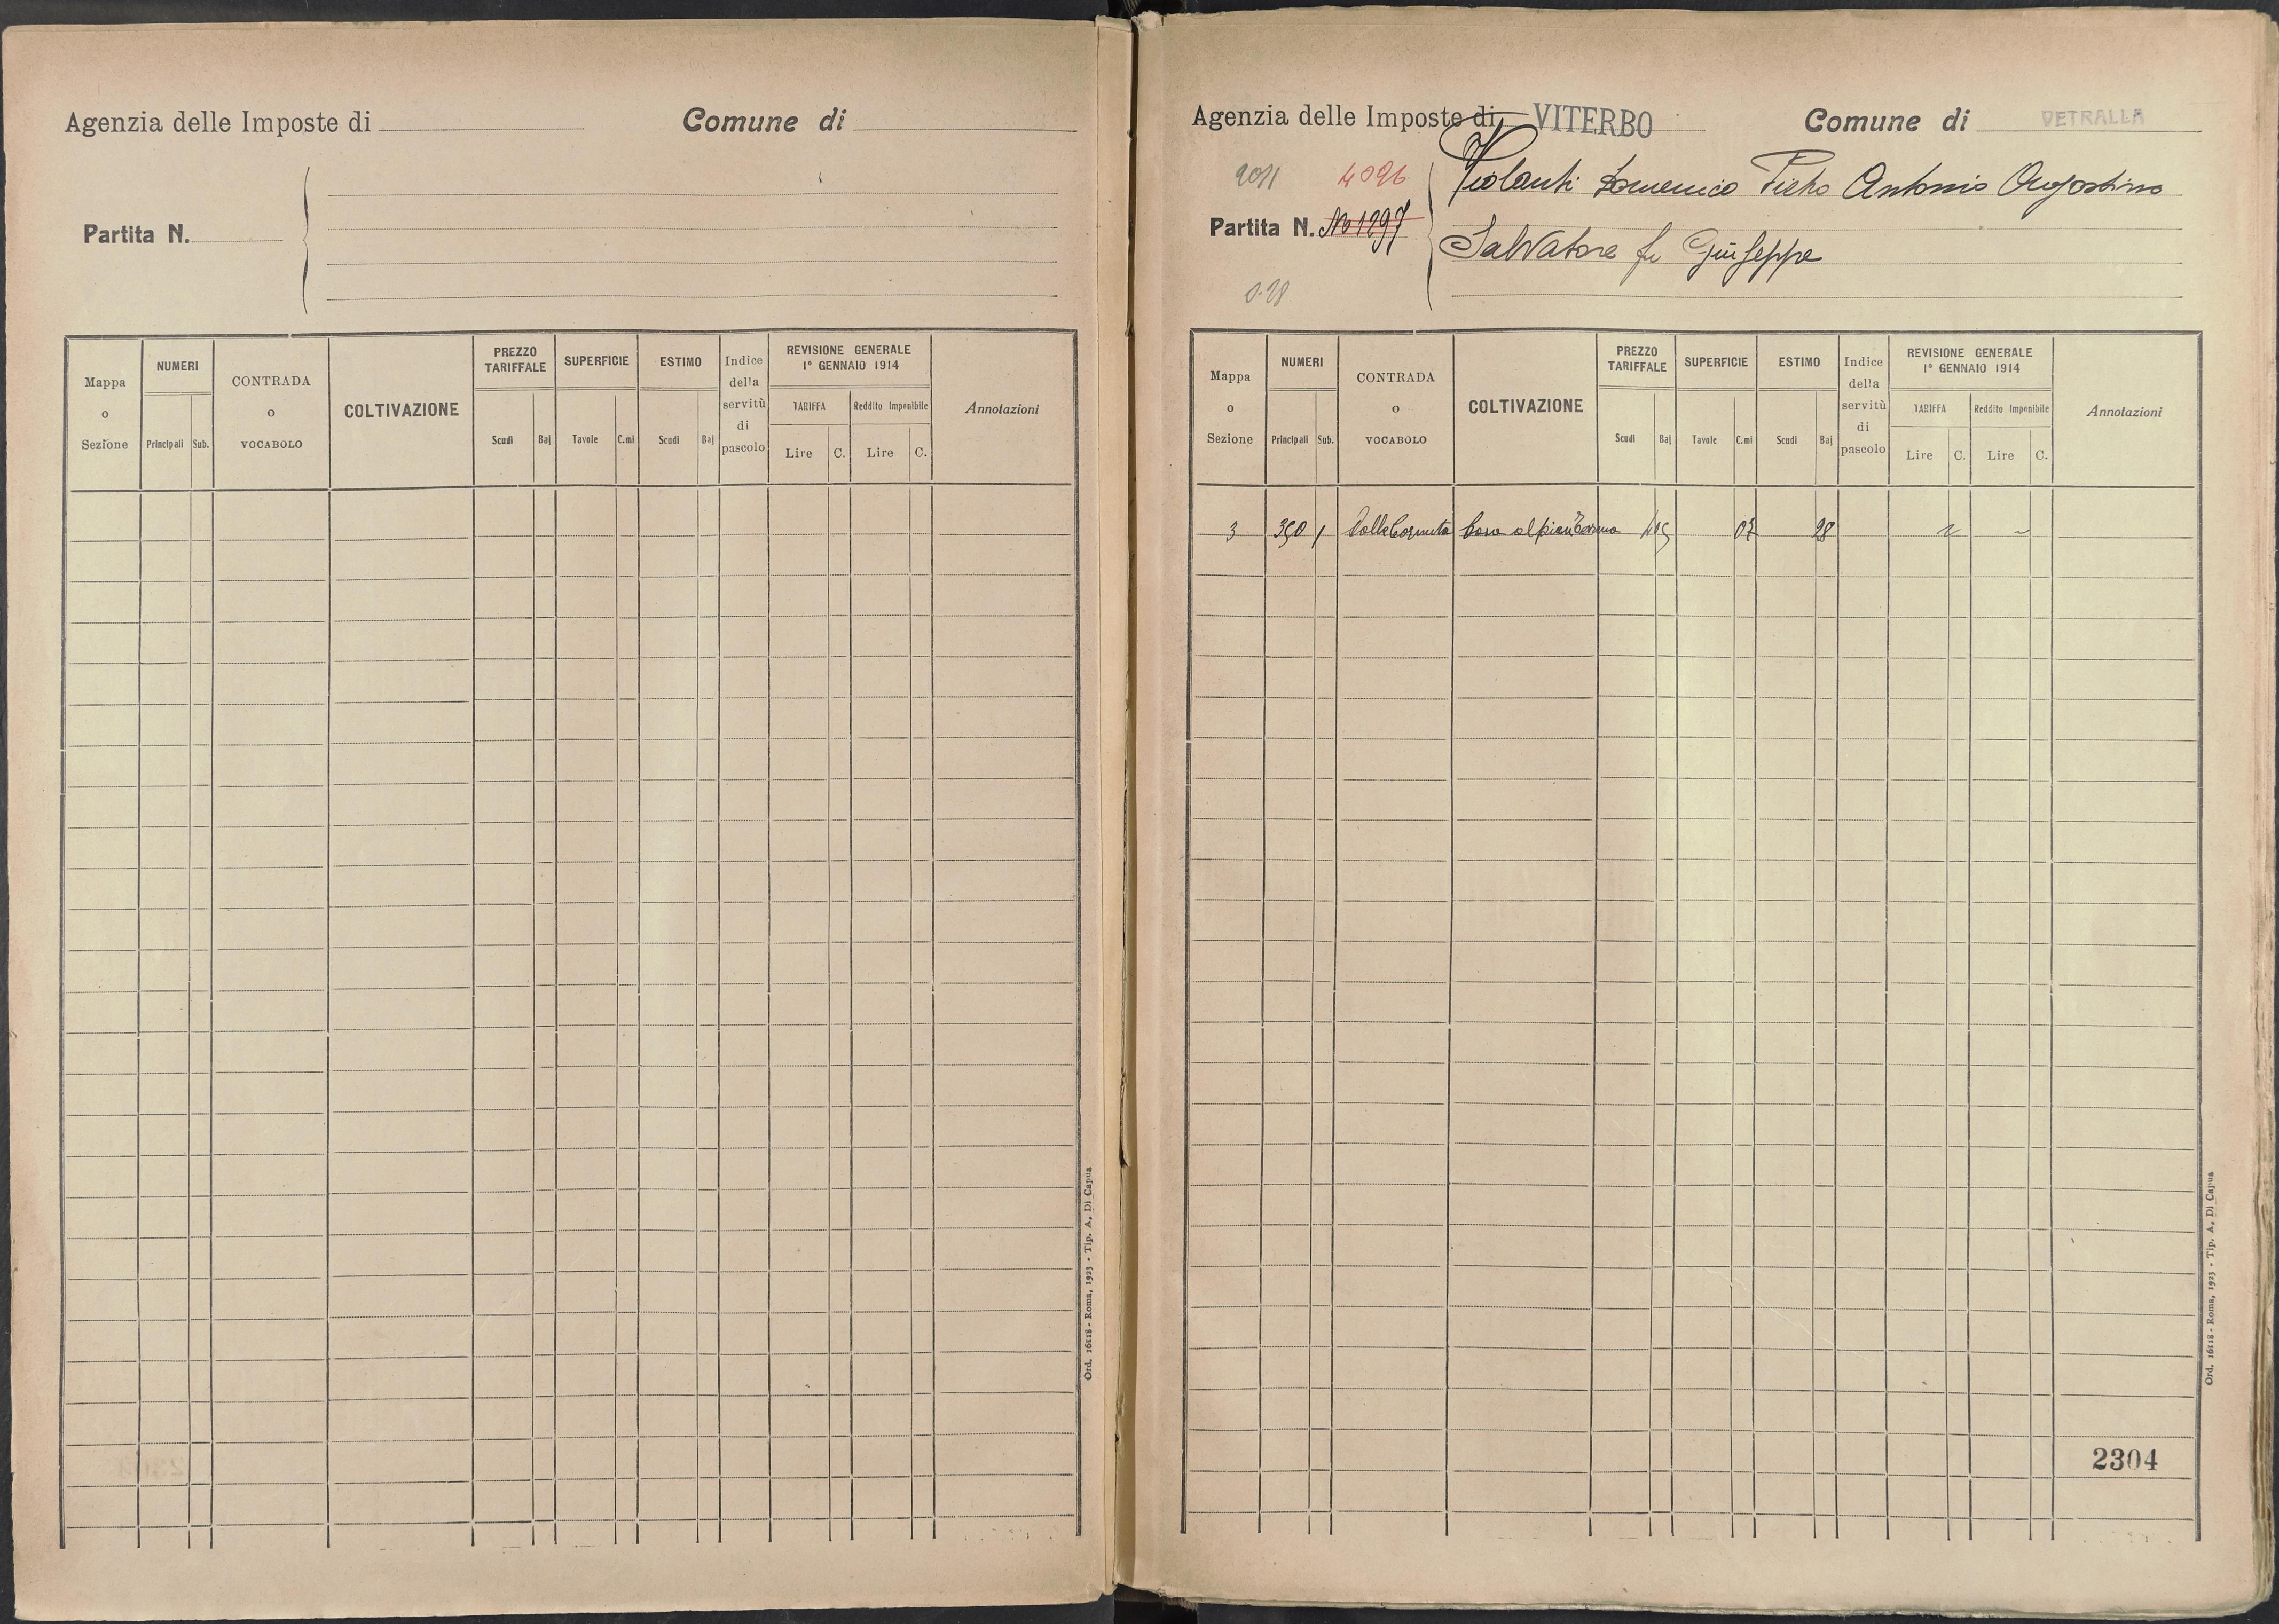 Agenzia delle Imposte di
Comune di
Partita N.
Mappa o Sezione
NUMERI
Principali Sub.
CONTRADA o VOCABOLO
COLTIVAZIONE
PREZZO TARIFFALE
Scudi Baj
SUPERFICIE
Tavole C.mi
ESTIMO
Scudi Baj
Indice della servitù di pascolo
REVISIONE GENERALE
1° GENNAIO 1914
TARIFFA Reddito Imponibile
Lire C. Lire C.
Annotazioni
Ord. 16118 - Roma, 1923 - Tip. A. Di Capua
Agenzia delle Imposte di VITERBO
Comune di VETRALLA
4096
Violanti Domenico Pietro Antonio Augostino
Partita N. 1297
Salvatore fu Giuseppe
0.28
Mappa o Sezione
NUMERI
Principali Sub.
CONTRADA o VOCABOLO
COLTIVAZIONE
PREZZO TARIFFALE
Scudi Baj
SUPERFICIE
Tavole C.mi
ESTIMO
Scudi Baj
Indice della servitù di pascolo
REVISIONE GENERALE
1° GENNAIO 1914
TARIFFA Reddito Imponibile
Lire C. Lire C.
Annotazioni
3 390 1 Valle Cornuta 28
2304
Ord. 16118 - Roma, 1923 - Tip. A. Di Capua